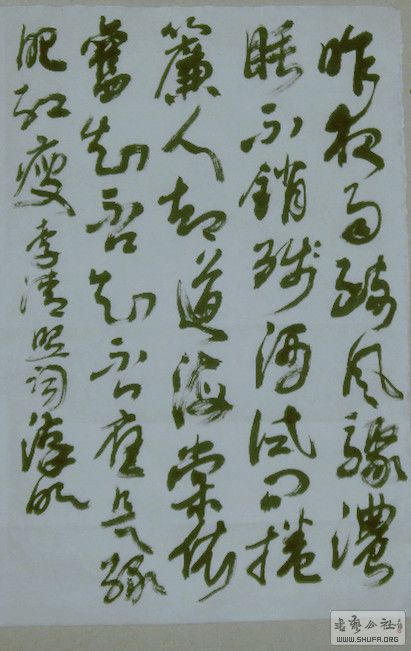 昨夜雨疏风驟濃
睡不銷残酒试问捲
簾人却道海棠依
舊知否知否應是綠
肥红瘦 李清照词
书艺公社
WWW.SHUFA.ORG